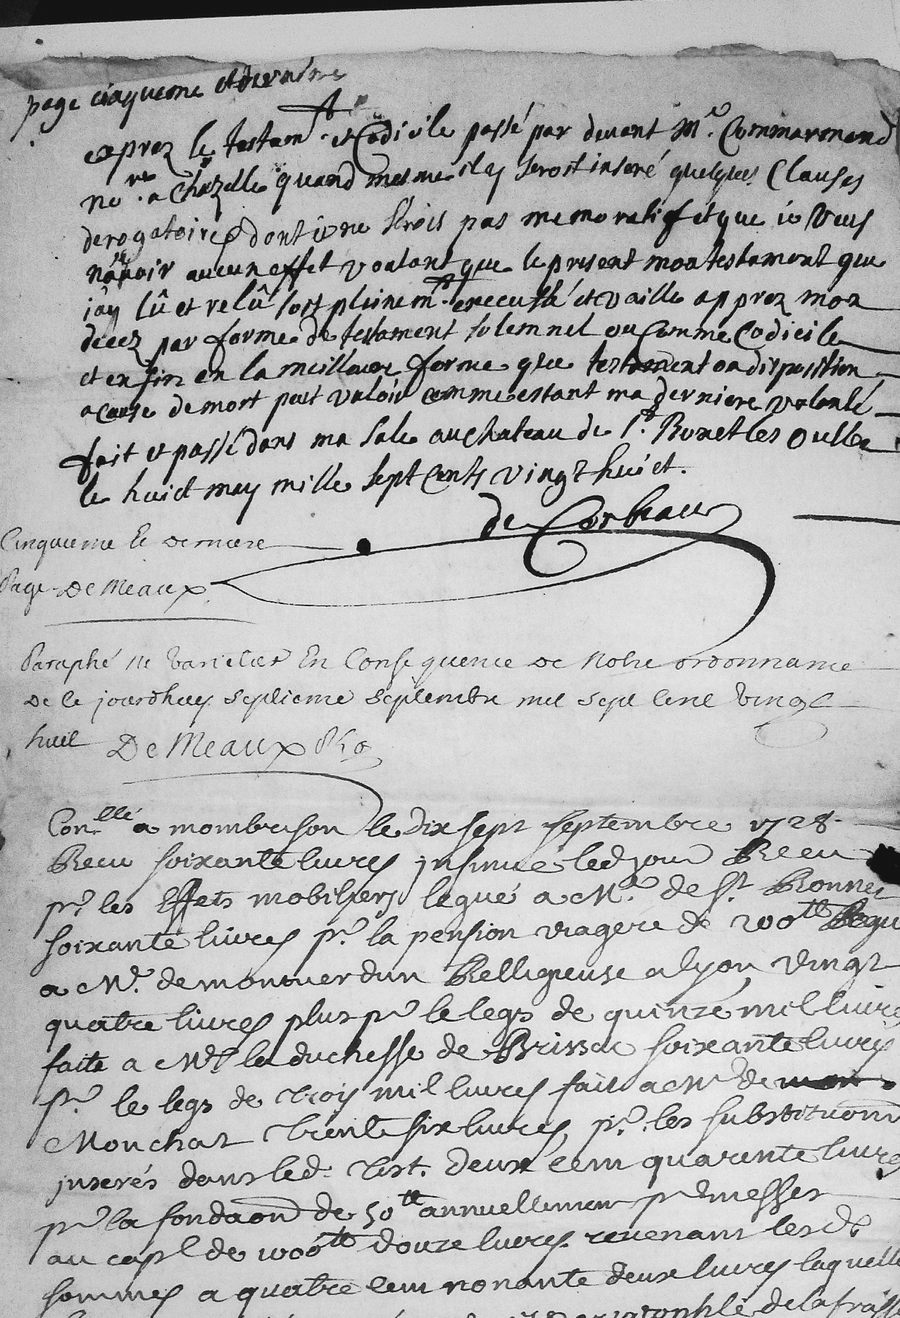 page cinquieme et derniere
aprez le testamt. et Codicile passé par devant Me. Commarmond
nore. a Chazelle quand mesme il y seroit inseré quelques Clauses
derogatoires dont je ne serois pas memoratif et que je veus
n'avoir aucun effet voulant que le present mon testament que
j'ay lû et relû soit pleinemt. executé et vaille apprez mon
decez par forme de testament solemnel ou Comme Codicile
et enfin en la meilleure forme que testament ou disposition
a cause de mort peut valoir comme estant ma derniere volonté
fait et passé dans ma sale au chateau de St. Bonet les Oulles
le huict may mille sept Cents vingt huict.
de Corbeau
Cinquieme Et derniere
Page De Meaux
Paraphé ne varietur En Consequence de Notre ordonnance
de ce jourdhuy septieme septembre mil sept Cent vingt
huit De Meaux
Conllé a mombrison le dix sept septembre 1728
Receu soixante livres insinué led jour Receu
pr. les Effets mobiliers legué a Mr. de St. Bonnet
soixante livres pr. la pension viagere de 200tt legué
a Me. de montverdun Relligieuse a lyon vingt
quatre livres plus pr le legs de quinze mil livres
faite a Me la duchesse de Brissac soixante livres
pr. le legs de trois mil livres fait a Mr de
Monchat trente six livres, pr. les substitutions
inserés dans led. test. deux cent quarente livres
pr la fondaon de 50tt annuellement pr messes
au capl de 1000tt douze livres revenant lesd
sommes a quatre cent nonante deux livres laquelle
de la frasse